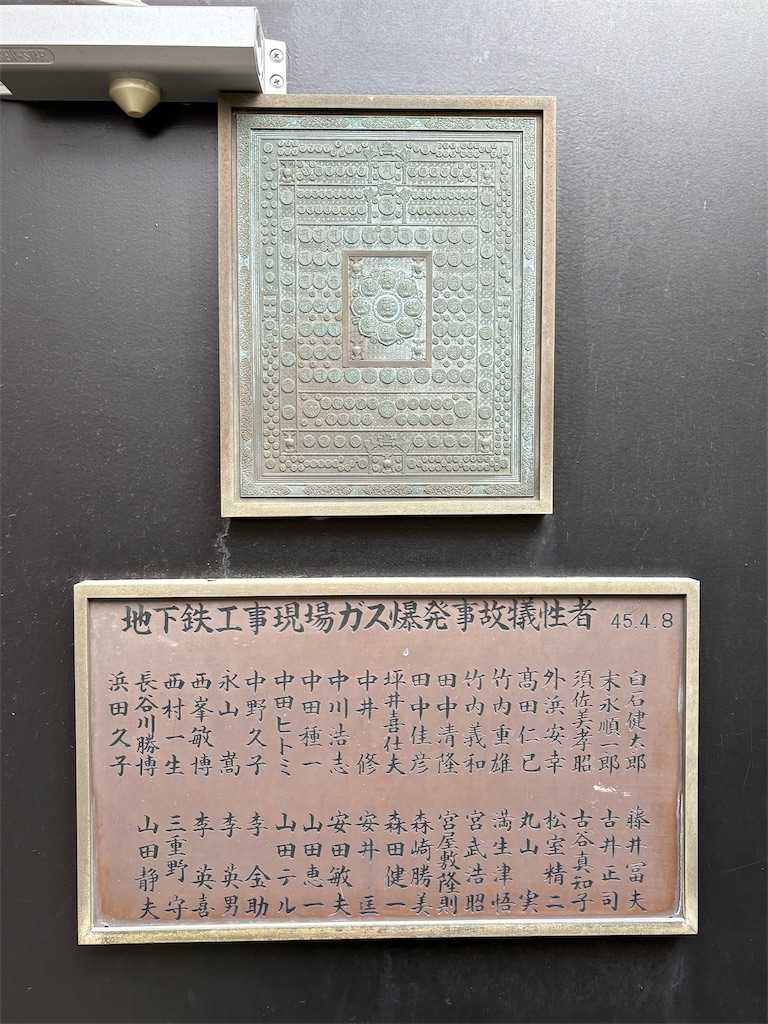 地下鉄工事現場ガス爆発事故犠牲者 45.4.8
白石健太郎
末永順一郎
須佐美孝昭
外浜安幸
髙田仁已
竹内重雄
竹内義和
田中清隆
田中佳彦
坪井喜仕夫
中井修
中川浩志
中田種一
中田ヒトミ
中野久子
永山嵩
西峯敏博
西村一生
長谷川勝博
浜田久子
藤井冨夫
古井正司
古谷真知子
松室精二
丸山実
満生津悟
宮武浩昭
宮屋敷隆則
森崎勝美
森田健一
安井匡
安田敏夫
山田恵一
山田テル
李金助
李英男
李英喜
三重野守
山田静夫